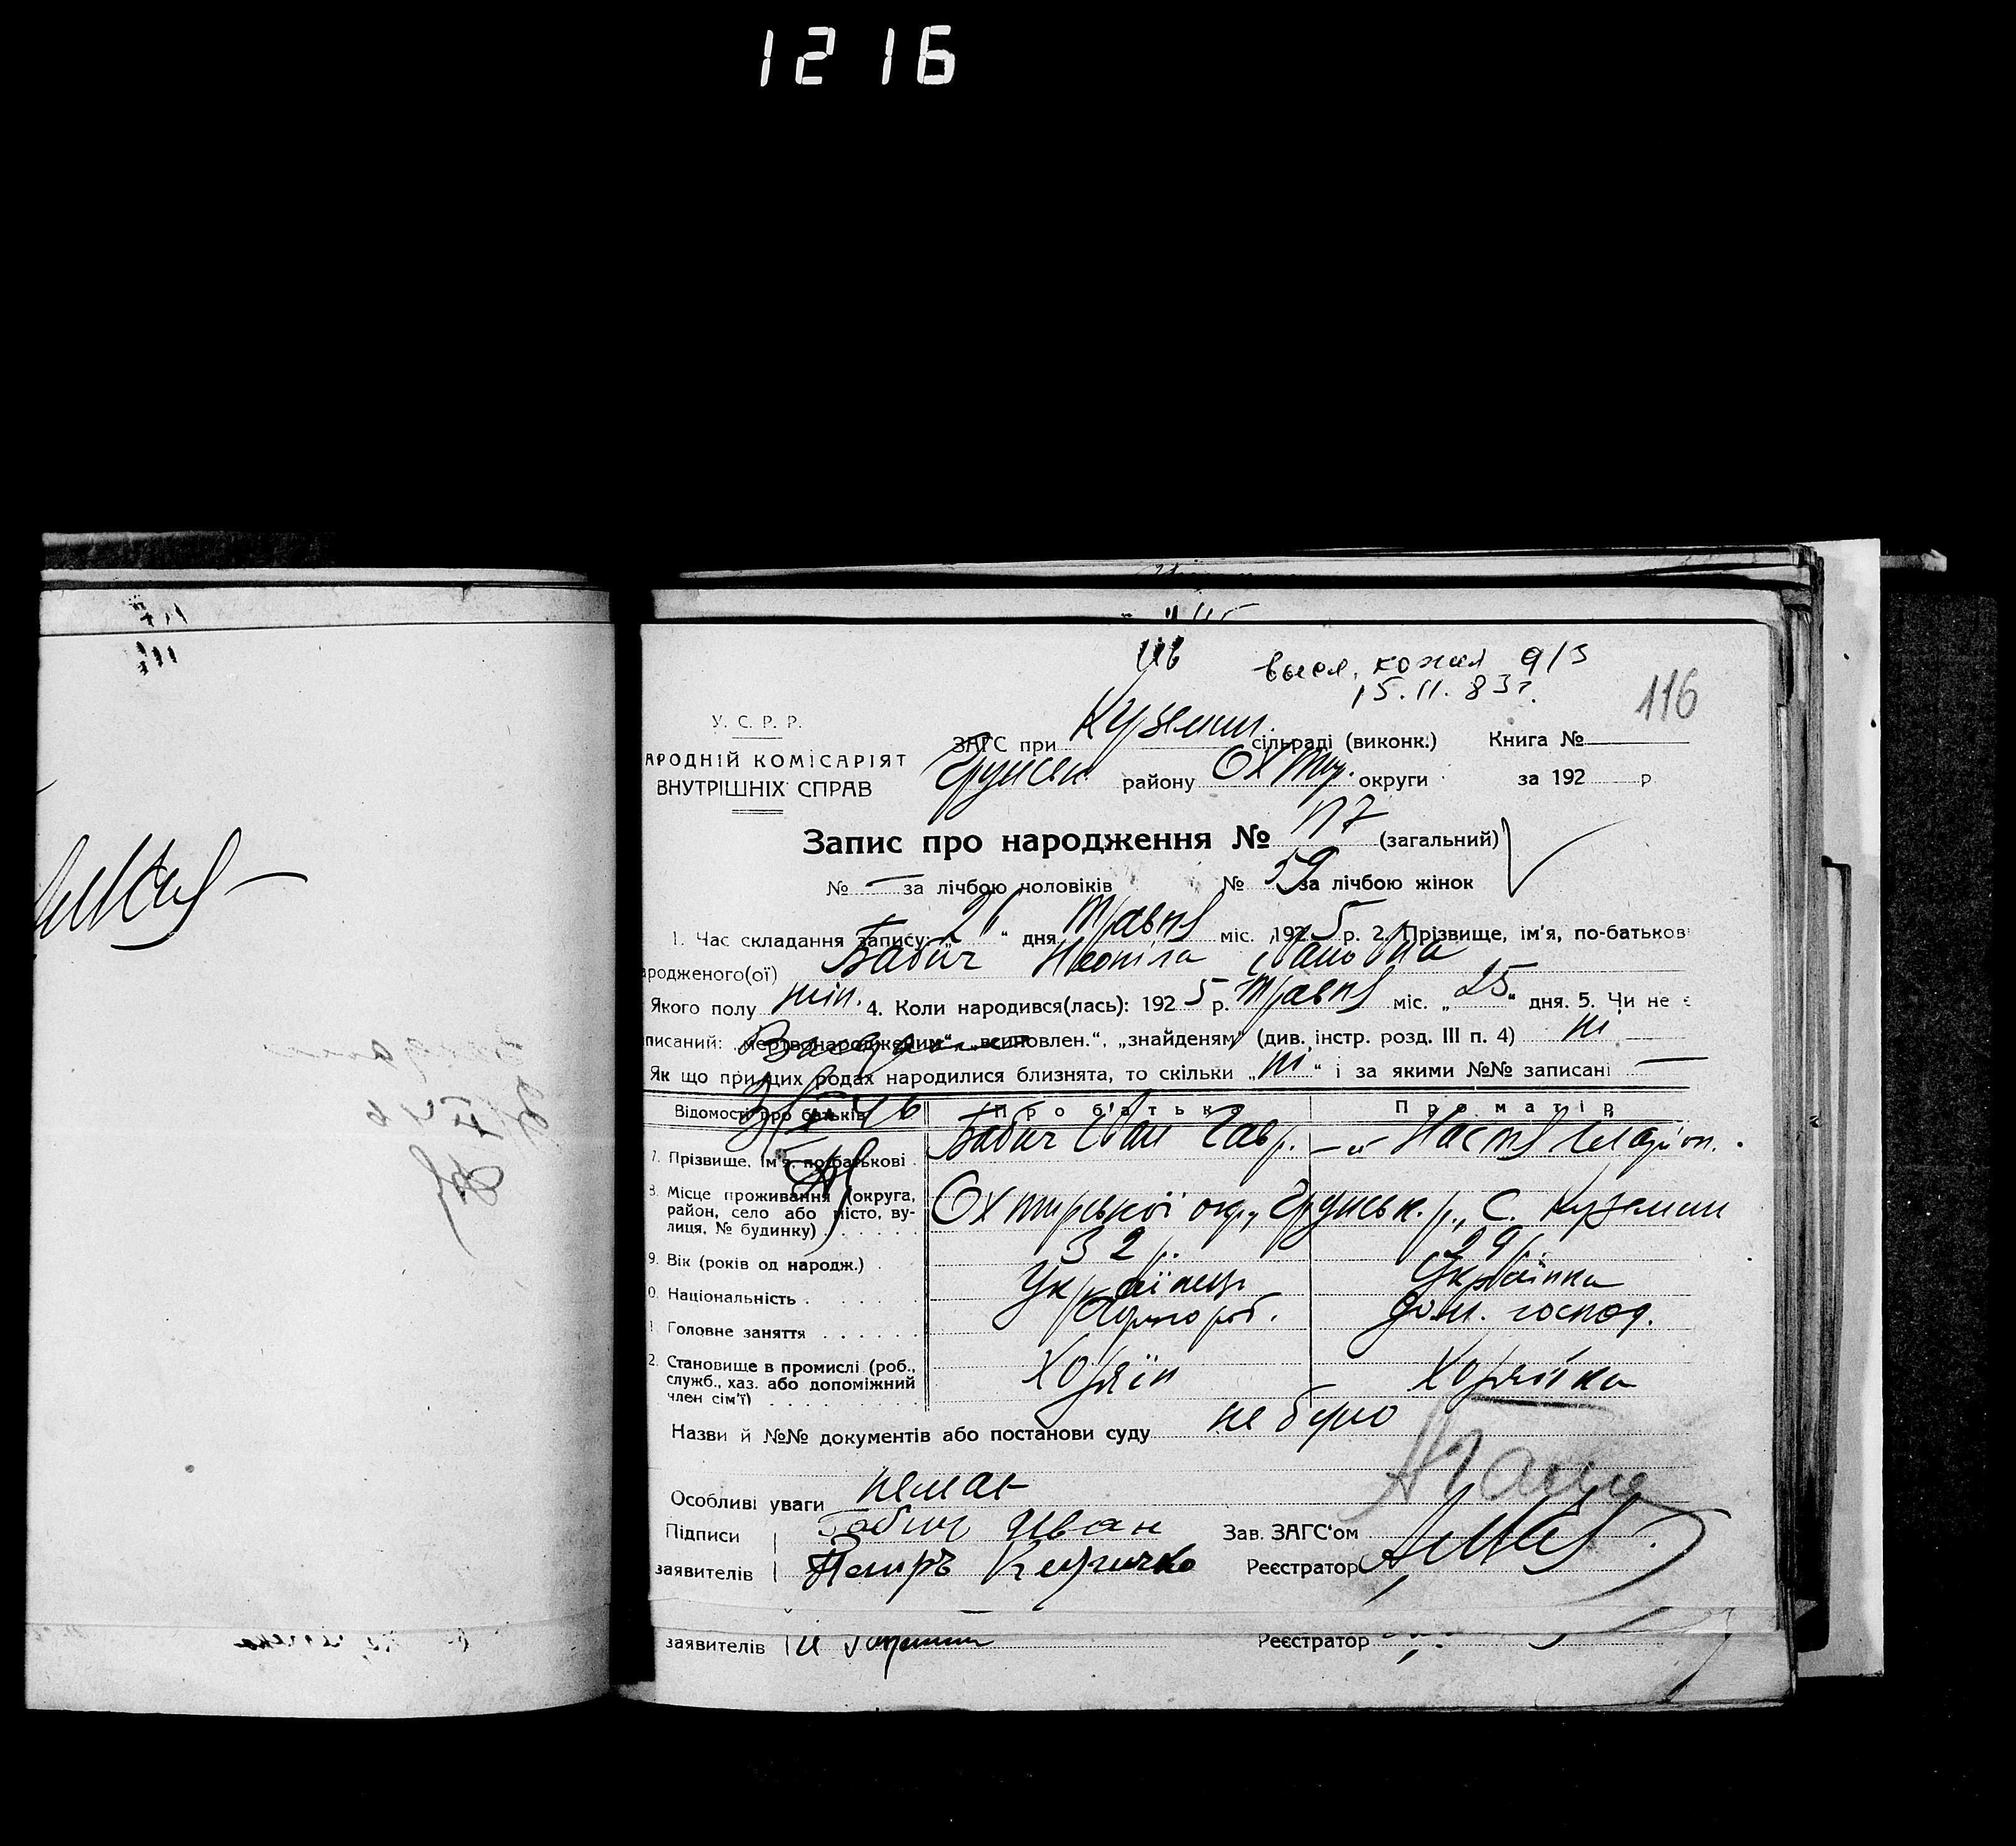 1216
116
высл. копия 9/3
15.11.83г.
116
У. С. Р. Р.
АРОДНІЙ КОМІСАРІЯТ
ВНУТРІШНІХ СПРАВ
ЗАГС при Куземин. сільраді (виконк.) Книга №
Грунськ району Охтир. округи за 192 р
Запис про народження № 117 (загальний)
№ — за лічбою чоловіків № 59 за лічбою жінок
1. Час складання запису: „26“ дня Травня міс. 1925 р. 2. Прізвище, ім'я, по-батькові
ародженого(ої) Бабич Неоніла Івановна
Якого полу жін. 4. Коли народився(лась): 1925 р. Травня міс. „25“ дня. 5. Чи не є
писаний: „мертвонародженим“, „всиновлен.“, „знайденям“ (див. інстр. розд. III п. 4) ні
Як що при цих родах народилися близнята, то скільки „ні“ і за якими №№ записані —
Відомості про батьків Про батька Про матір
7. Прізвище, ім'я, по-батькові Бабич Іван Гавр. —„— Настя Іларіон.
8. Місце проживання (округа,
район, село або місто, ву-
лиця, № будинку) Охтирської окр., Грунськ. р., с. Куземин
9. Вік (років од народж.) 32 р. 29 р.
0. Національність Українець Українка
1 Головне заняття дом. господ.
2. Становище в промислі (роб.,
служб., хаз. або допоміжний
член сім'ї) Хозяїн Хозяїка
Назви й №№ документів або постанови суду не було
Особливі уваги немає
Підписи Бабич Иван Зав. ЗАГС'ом
заявителів Петръ Реєстратор
заявителів Реєстратор